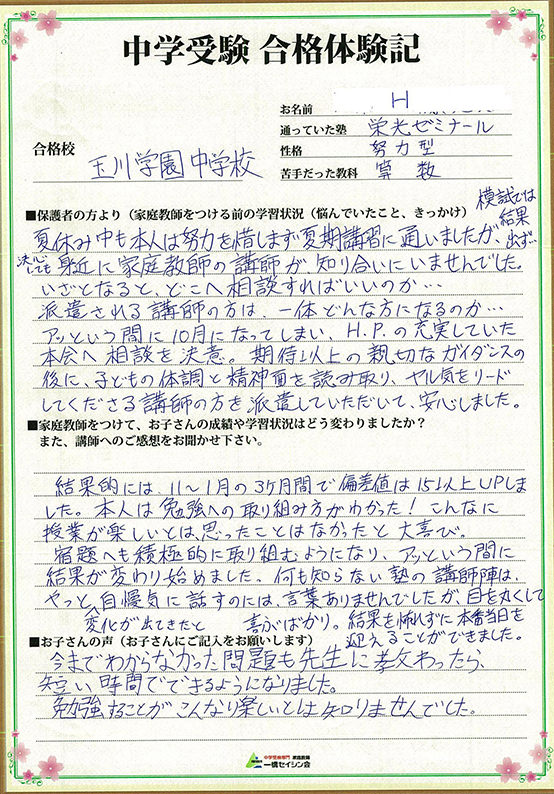 中学受験 合格体験記
お名前 H
通っていた塾 栄光ゼミナール
性格 努力型
苦手だった教科 算数
合格校 玉川学園中学校
■保護者の方より（家庭教師をつける前の学習状況（悩んでいたこと、きっかけ）
夏休み中も本人は努力を惜しまず夏期講習に通いましたが、模試では結果出ず…
決心しても身近に家庭教師の講師が、知り合いにいませんでした。
いざとなると、どこへ相談すればいいのか…
派遣される講師の方は、一体どんな方になるのか…
アッという間に10月になってしまい、H.P.の充実していた
本会へ相談を決意。期待以上の親切なガイダンスの
後に、子どもの体調と精神面を読み取り、ヤル気をリード
してくださる講師の方を派遣していただいて、安心しました。
■家庭教師をつけて、お子さんの成績や学習状況はどう変わりましたか？
また、講師へのご感想をお聞かせ下さい。
結果的には、11～1月の3ヶ月間で偏差値は15以上UPしま
した。本人は勉強への取り組み方がわかった！こんなに
授業が楽しいとは、思ったことはなかったと大喜び。
宿題へも積極的に取り組むようになり、アッという間に
結果が変わり始めました。何も知らない塾の講師陣は、
やっと変化が出てきたと自慢気に話すのには、言葉ありませんでしたが、目を丸くして
喜ぶばかり。結果を怖れずに本番当日を
迎えることができました。
■お子さんの声（お子さんにご記入をお願いします）
今までわからなかった問題も先生に教わったら、
短い時間でできるようになりました。
勉強することがこんなに楽しいとは知りませんでした。
中学受験専門 家庭教師
一橋セイシン会